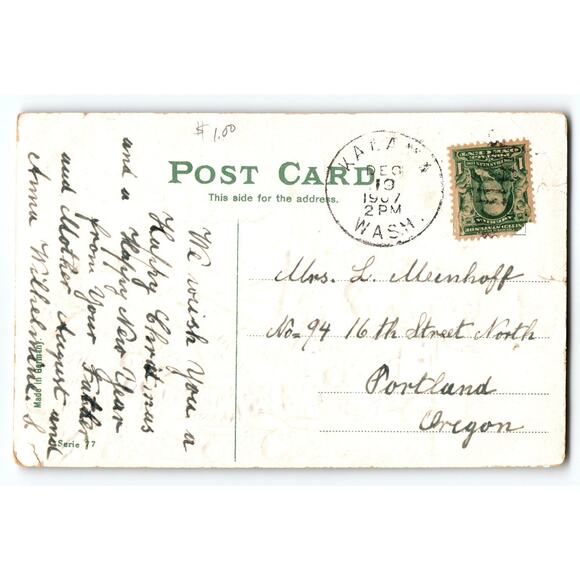 $1.00
POST CARD
This side for the address.
KALAMA
DEC
19
1907
2 PM
WASH.
We wish You a
Happy Christmas
and a Happy New Year
from Your Father
and Mother August and
Anna Wilhelmine. S
Mrs. L. Meinhoff
No = 94 16th Street North
Portland
Oregon
Made in Germany
Serie 77